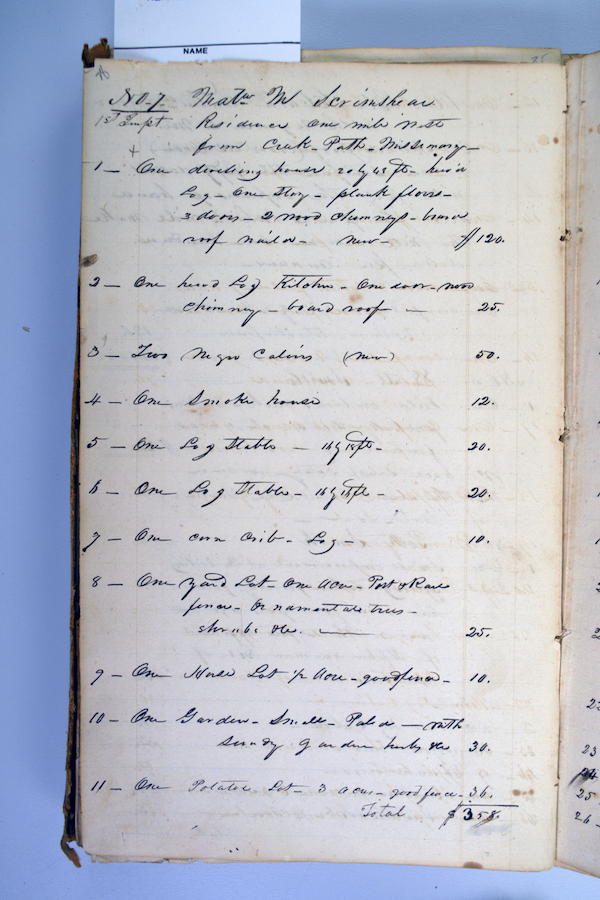 NAME
No. 7. Matw M Scrimshear
1st Impt. Residence One mile West
from Creek-Path-Missionary-
1 - One dwelling house 20 by 45 ft- hew'd
Log- One Story - plank floors-
3 doors- 2 wood chimneys- board
roof nailed - new- $120.
2 - One hewd Log Kitchen- One door- wood
chimney- board roof - 25.
3 - Two Negro Cabins (new) 50.
4 - One Smoke house 12.
5 - One Log Stable - 16 by 18 ft- 20.
6 - One Log Stable- 16 by 18 ft- 20.
7 - One corn Crib- Log- 10.
8 - One Yard Lot- One Acre- Post & Rail
fence- Ornamental trees-
shrubs &c. - 25.
9 - One Horse Lot 1/2 Acre- good fence- 10.
10 - One Garden- Small- Paled - with
Sundry Garden herbs &c 30.
11 - One Potatoe Lot- 3 Acres- good fence- 36.
Total $358.
23
24
25
26